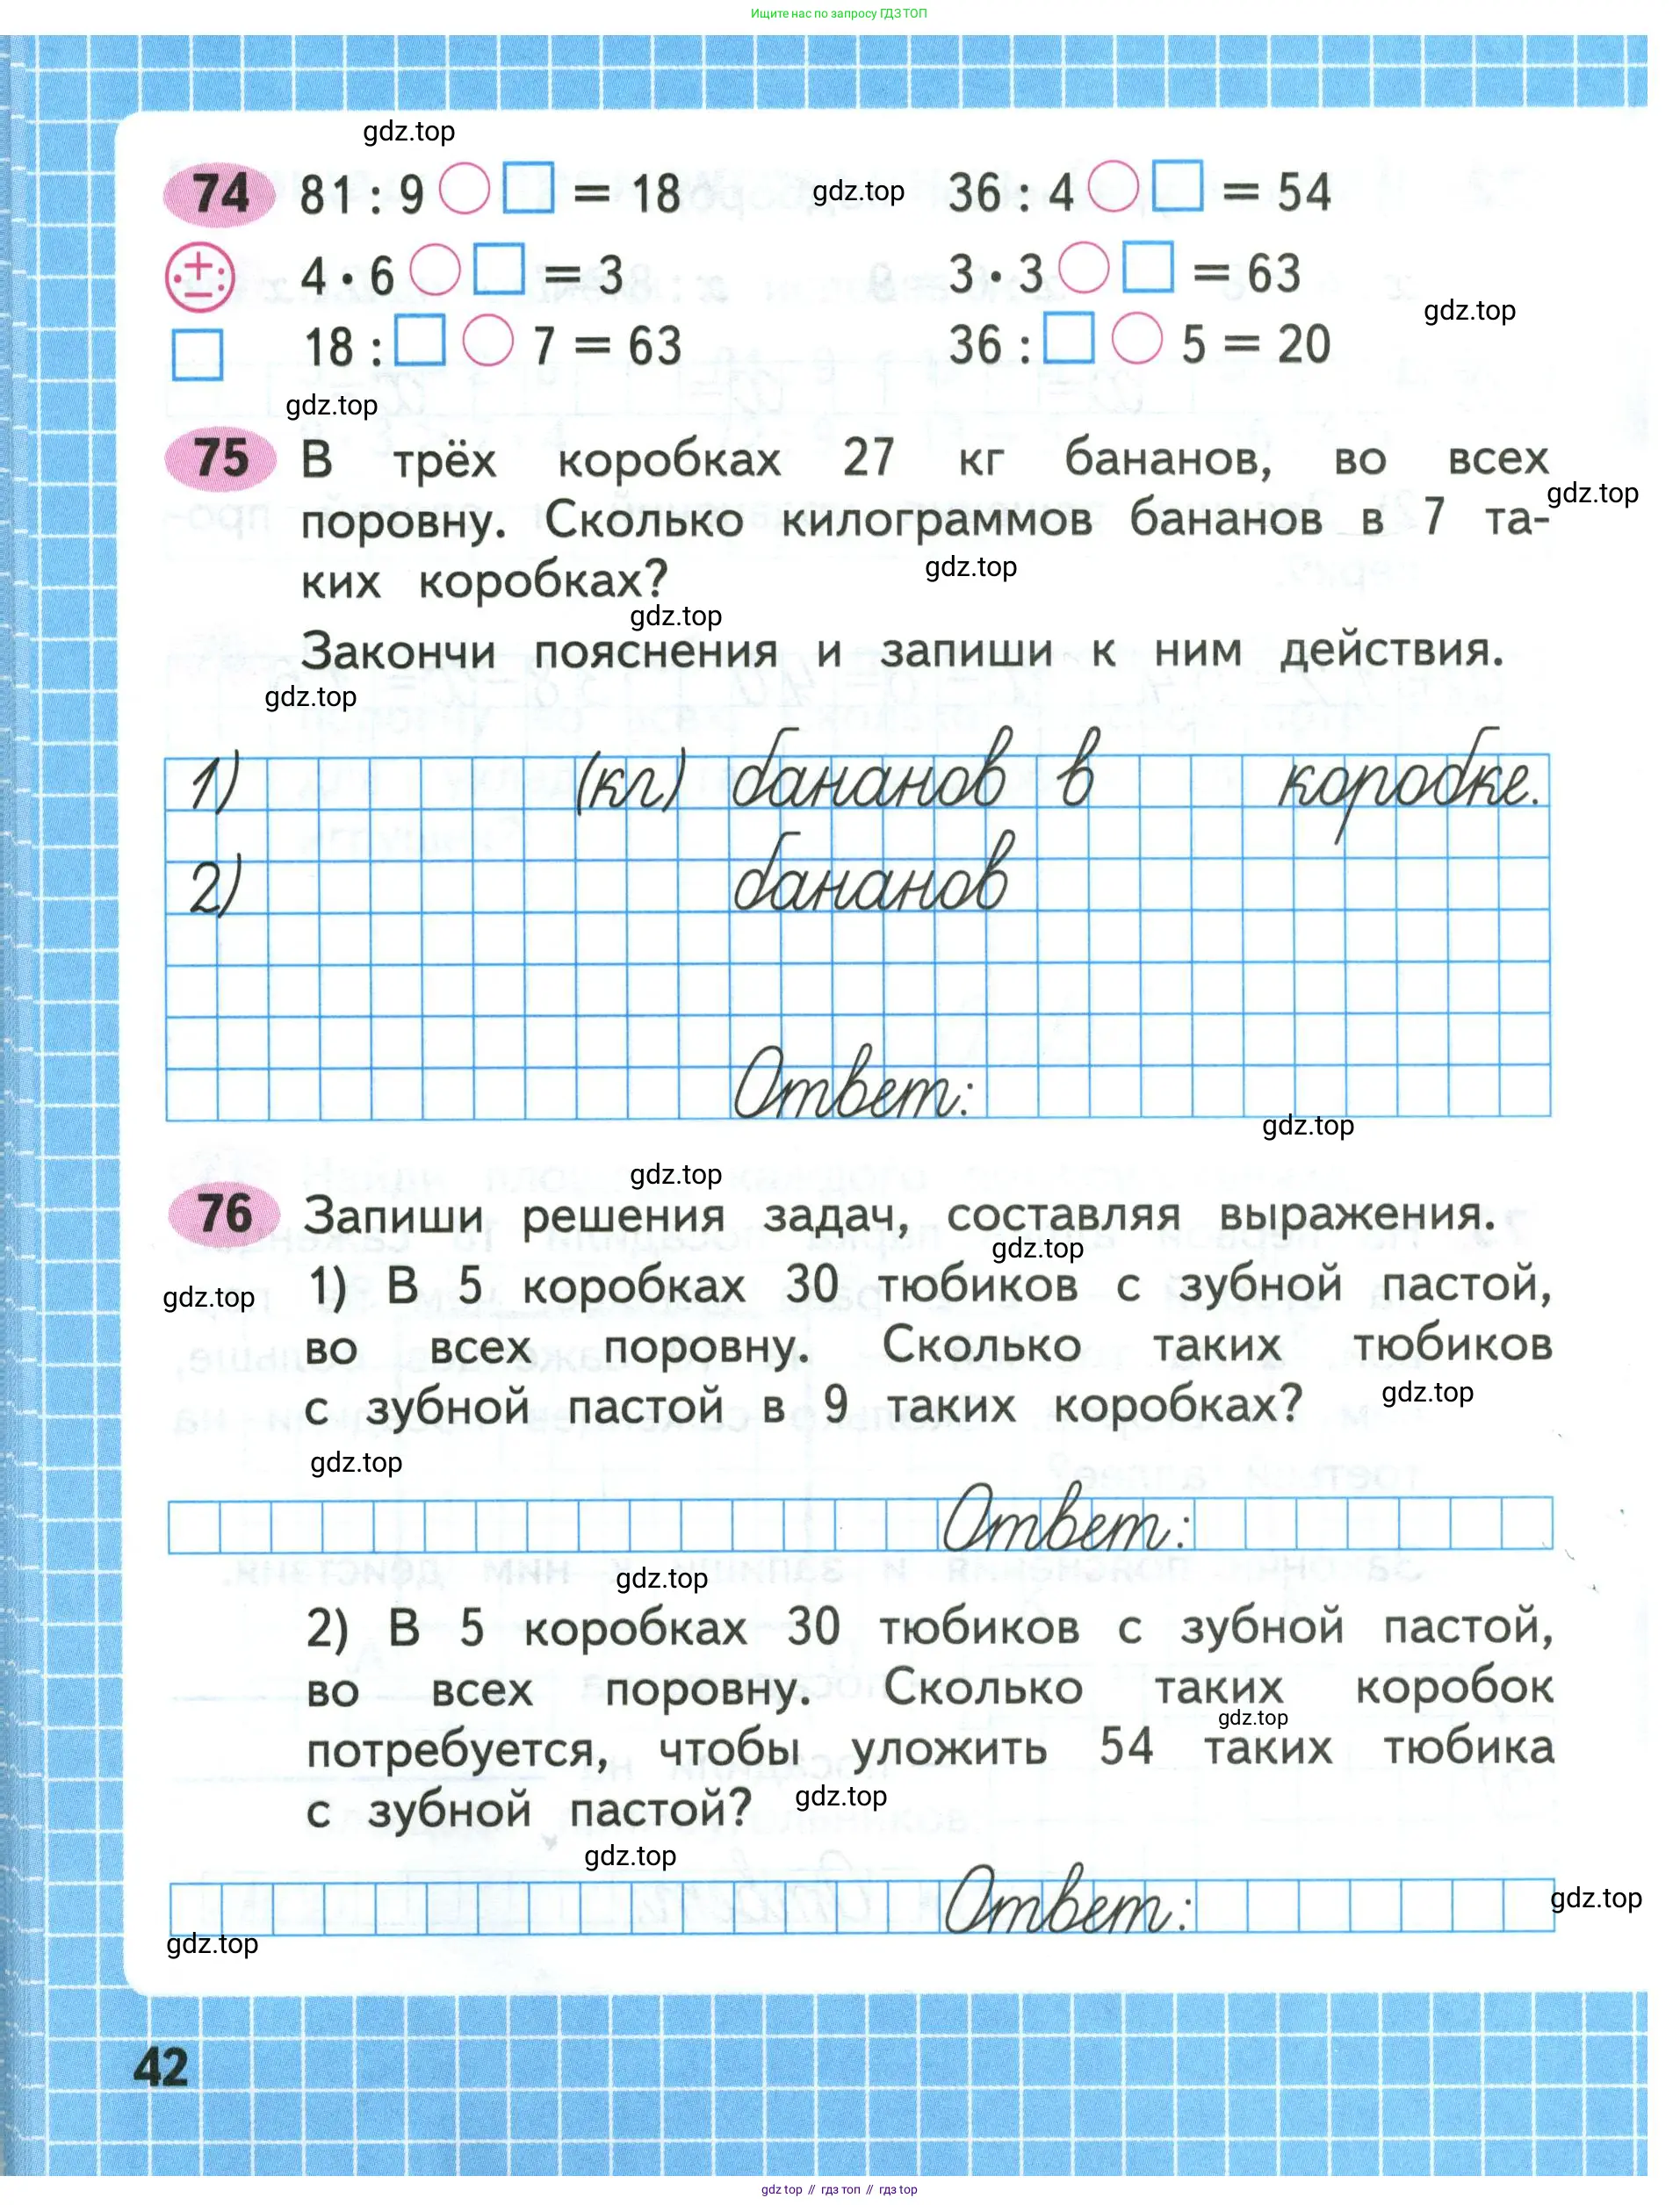 Ищите нас по запросу ГДЗ ТОП
gdz.top
74 81 : 9 ○ □ = 18 gdz.top 36 : 4 ○ □ = 54
4 · 6 ○ □ = 3 3 · 3 ○ □ = 63
gdz.top
18 : □ ○ 7 = 63 36 : □ ○ 5 = 20
gdz.top
75 В трёх коробках 27 кг бананов, во всех
gdz.top
поровну. Сколько килограммов бананов в 7 та-
gdz.top
ких коробках?
gdz.top
Закончи пояснения и запиши к ним действия.
gdz.top
1) (кг) бананов в коробке.
2) бананов
Ответ:
gdz.top
gdz.top
76 Запиши решения задач, составляя выражения.
gdz.top
1) В 5 коробках 30 тюбиков с зубной пастой,
gdz.top
во всех поровну. Сколько таких тюбиков
с зубной пастой в 9 таких коробках?
gdz.top
gdz.top
Ответ:
gdz.top
2) В 5 коробках 30 тюбиков с зубной пастой,
во всех поровну. Сколько таких коробок
gdz.top
потребуется, чтобы уложить 54 таких тюбика
с зубной пастой?
gdz.top
gdz.top
Ответ:
gdz.top
gdz.top
42
gdz top // гдз топ // гдз top